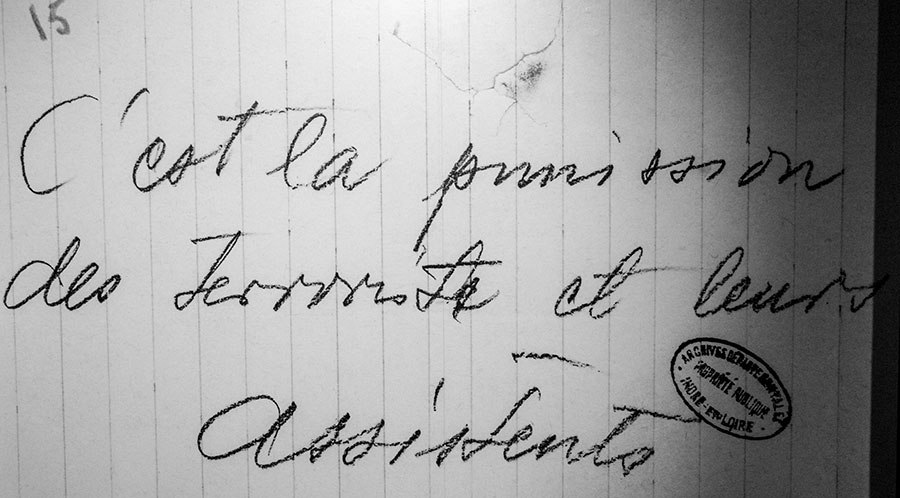 15
C'est la punission
des Terroriste et leurs
Assistents
ARCHIVES DÉPARTEMENTALES
PROPRIÉTÉ PUBLIQUE
INDRE-ET-LOIRE